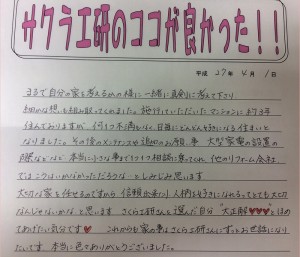 サクラ工研のココが良かった!!
平成 27年 4月 1日
まるで自分の家を考えるかの様に一緒に真剣に考えて下り
細かな想いも組み取ってくれました。施行していただいたマンションに約3年
住んでおりますが、何1つ不満もない、日毎にどんどん好きになる住まいと
なりました。その後のメンテナンスや追加のお願い事 大型家電の設置の
際など 本当に小さな事まで1つ1つ相談に乗ってくれ 他のリフォーム会社
ではこうはいかなかっただろうな…としみじみ思います
大切な家を任せるのですから 信頼出来たり 人柄を好きになれるってとても大切
なんじゃないかな と思います さくら工研さんを選んだ自分"大正解♥♥♥"とほめ
てあげたい気分です♥ これからも家の事はさくら工研さんにずっとお世話になり
たいです。本当に色々ありがとうございました。